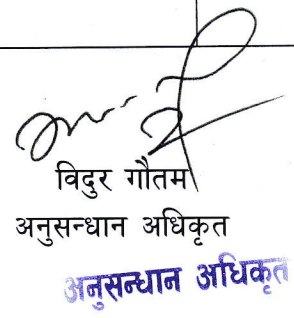 विदुर गौतम
अनुसन्धान अधिकृत
अनुसन्धान अधिकृत